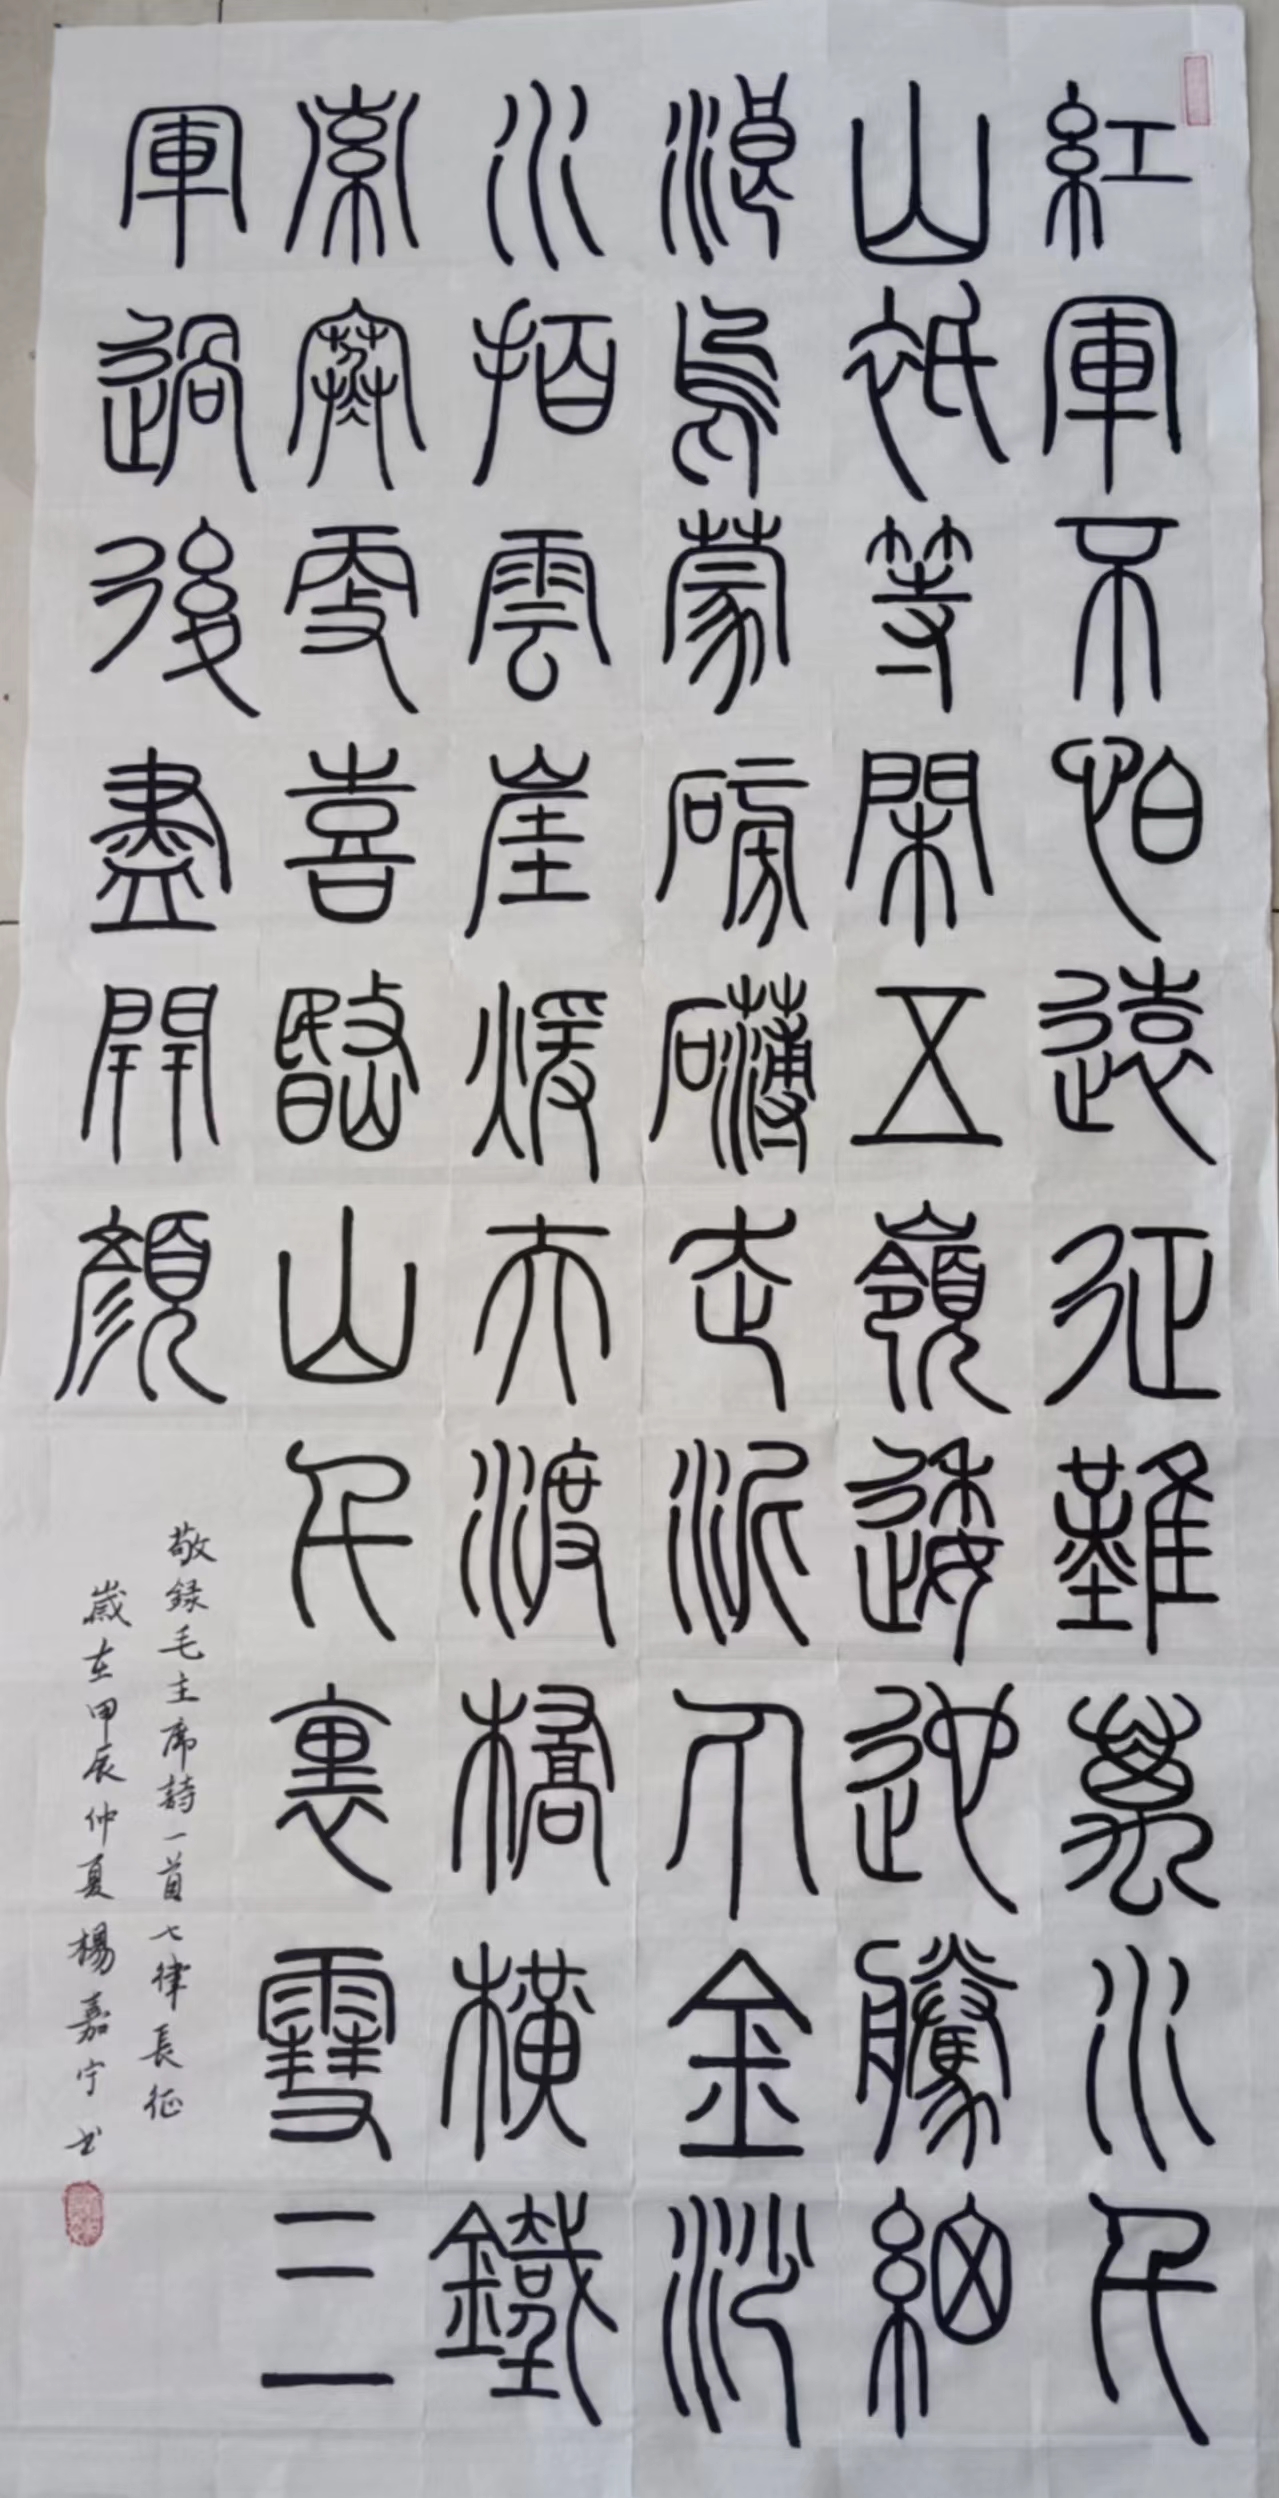 紅軍不怕遠征難萬水千
山衹等閑五嶺逶迤騰細
浪烏蒙磅礴走泥丸金沙
水拍雲崖煖大渡橋橫鐵
索寒更喜岷山千裏雪三
軍過後盡開顏
敬録毛主席詩一首七律長征
歲在甲辰仲夏楊嘉宁书